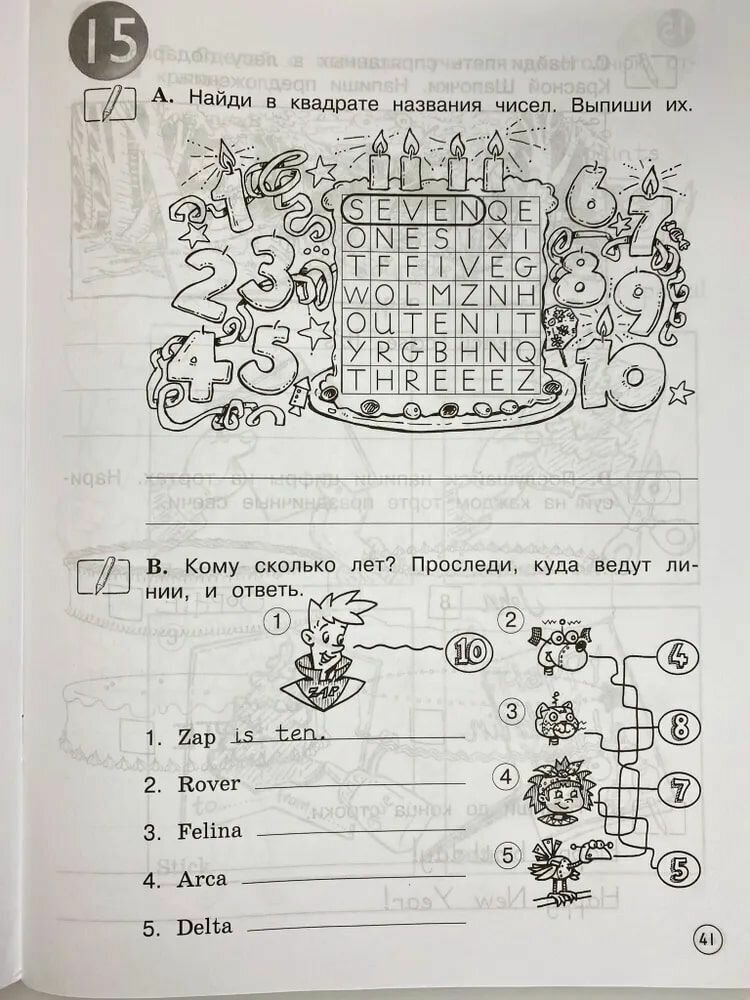 15
А. Найди в квадрате названия чисел. Выпиши их.
1
2 3
4 5
6 7
8 9
10
S E V E N Q E
O N E S I X I
T F F I V E G
W O L M Z N H
O U T E N I T
Y R G B H N Q
T H R E E E Z
В. Кому сколько лет? Проследи, куда ведут ли-
нии, и ответь.
1
ZAP
10
2
4
3
8
4
7
5
5
1. Zap is ten.
2. Rover
3. Felina
4. Arca
5. Delta
41